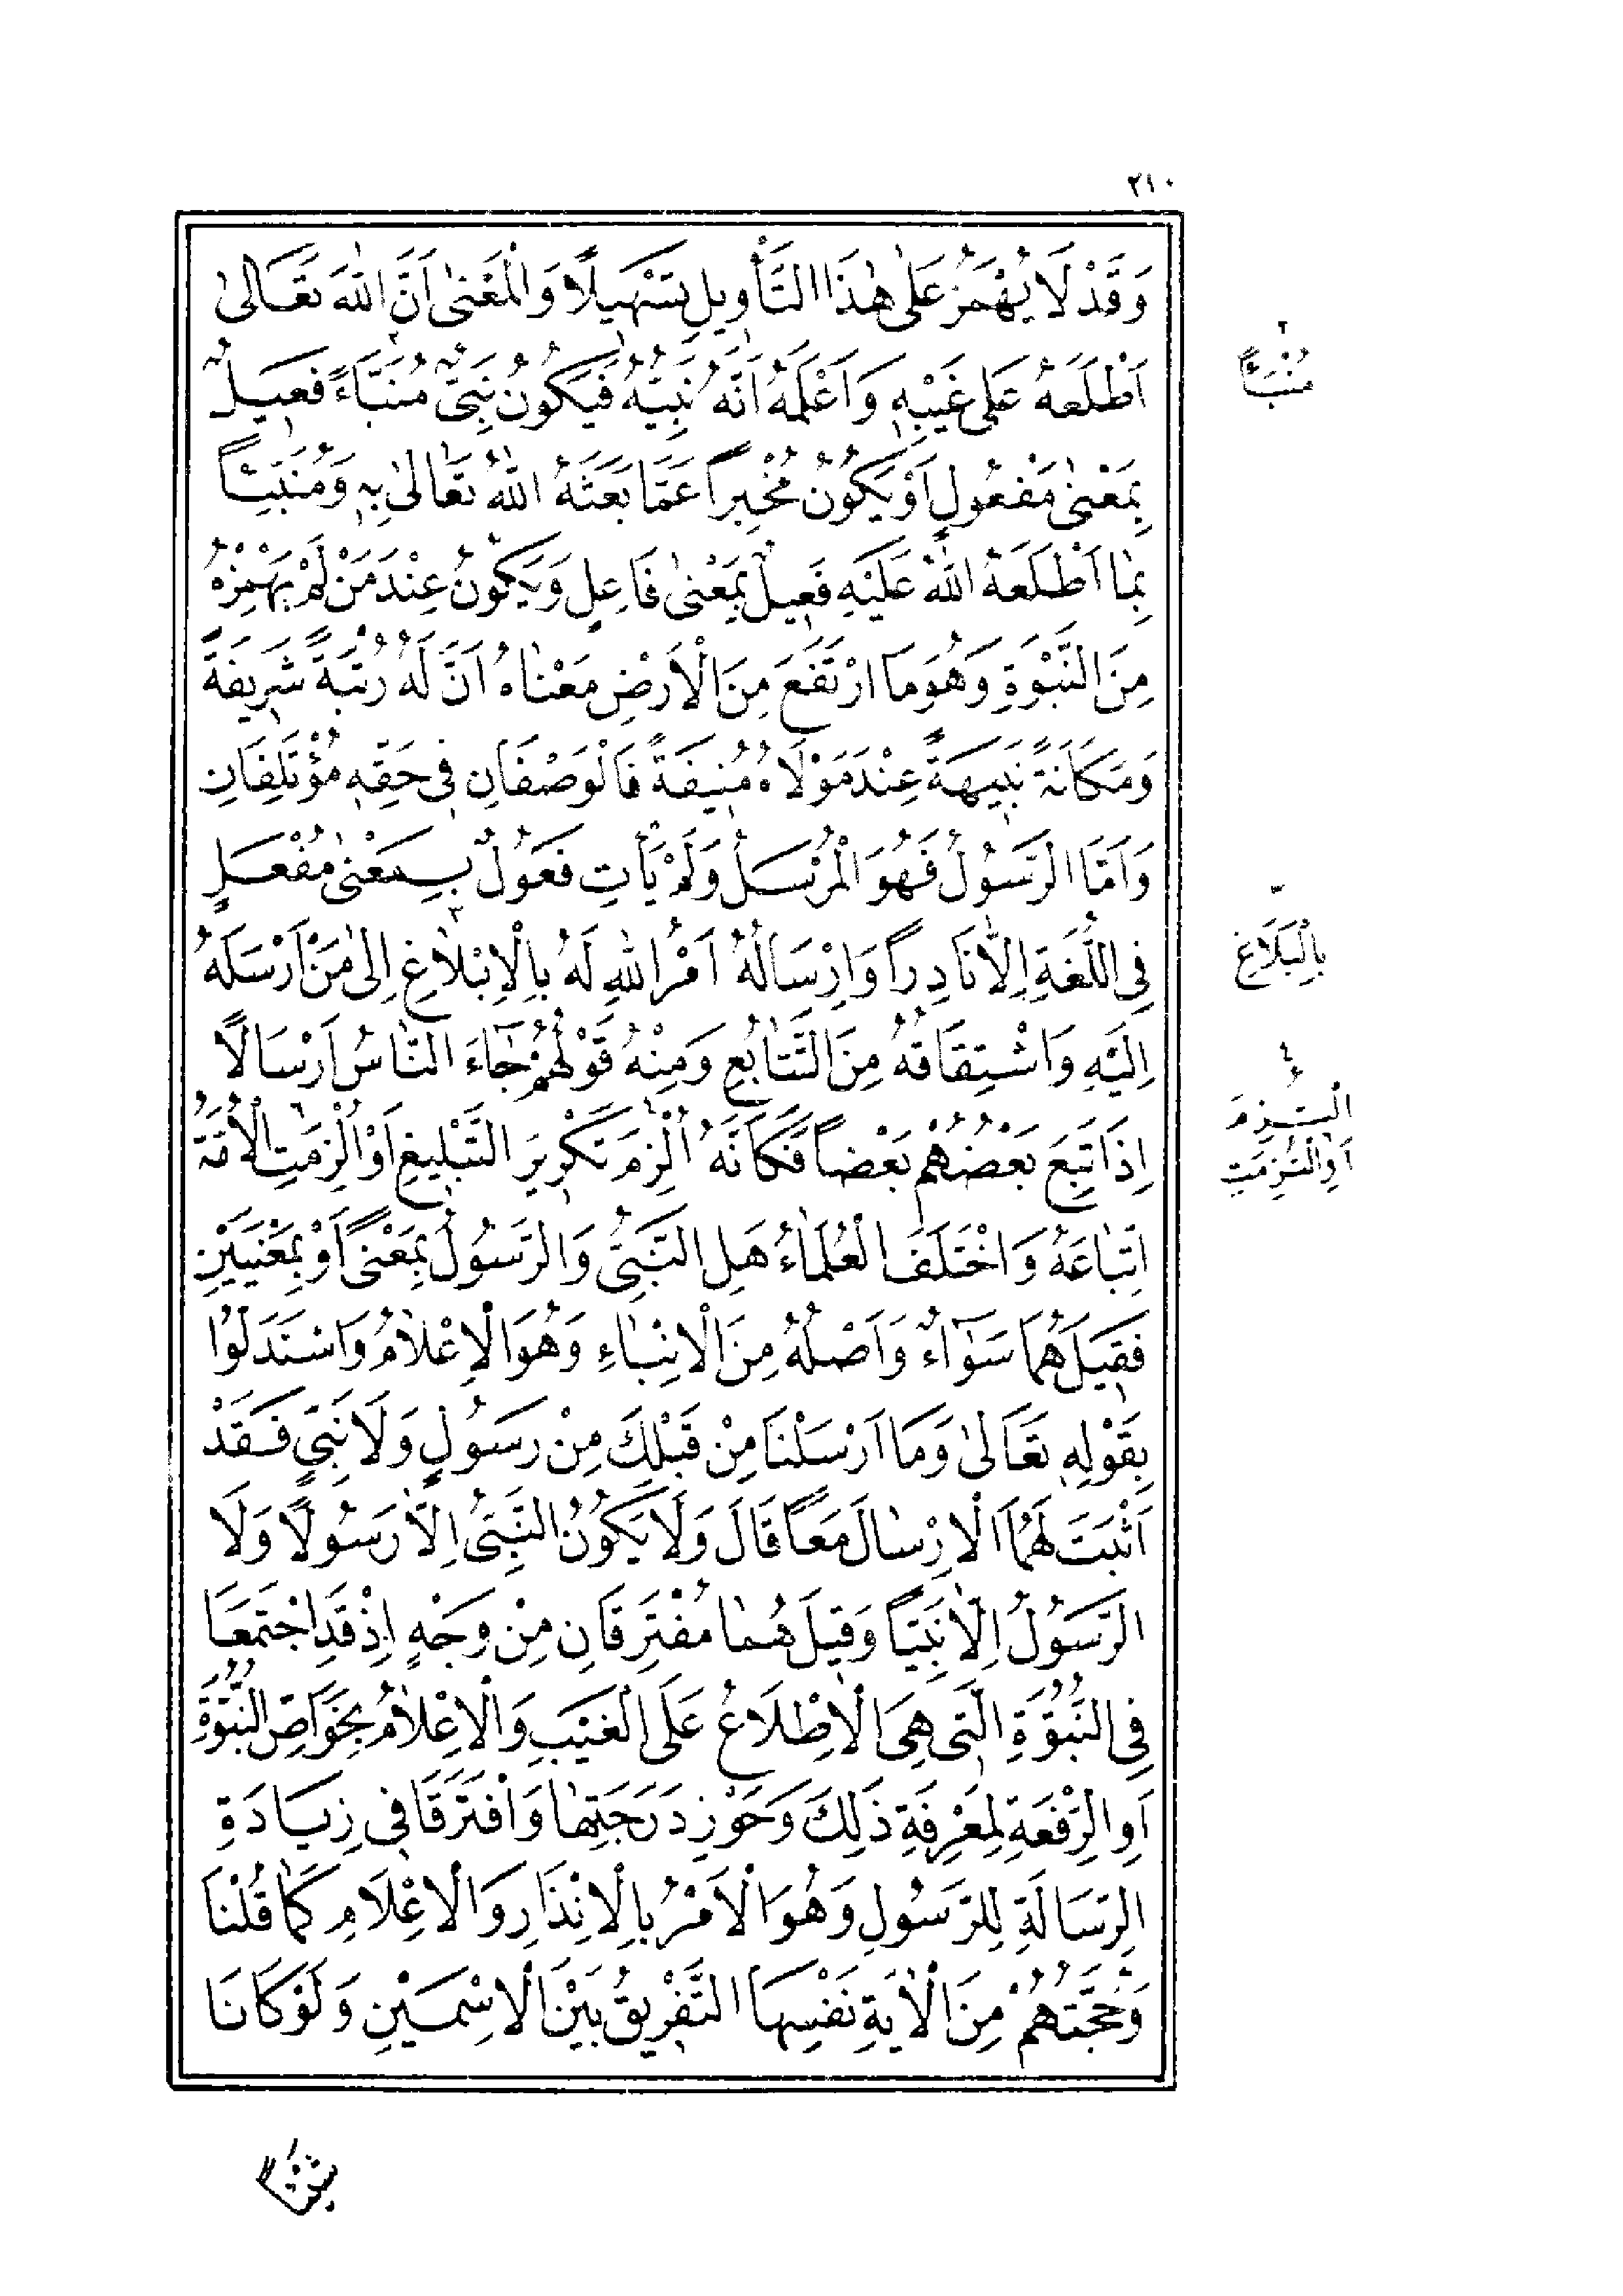 ٢١٠
وَقَدْ لَا يُهْمَزُ عَلٰى هٰذَا التَّأْوِيلِ تَسْهِيلًا وَالْمَعْنٰى اَنَّ اللّٰهَ تَعَالىٰ
اَطْلَعَهُ عَلٰى غَيْبِهِ وَاَعْلَمَهُ اَنَّهُ نَبِيُّهُ فَيَكُونُ نَبِىٌّ مُنَبَّاءً فَعِيلٌ
مُنْبَئًا
بِمَعْنٰى مَفْعُولٍ اَوْ يَكُونُ مُخْبِراً عَمَّا بَعَثَهُ اللّٰهُ تَعَالٰى بِهِ وَمُنَبِّئًا
بِمَا اَطْلَعَهُ اللّٰهُ عَلَيْهِ فَعِيلٌ بِمَعْنٰى فَاعِلٍ وَيَكُونُ عِنْدَ مَنْ لَمْ يَهْمِزْهُ
مِنَ النَّبْوَةِ وَهُوَ مَا ارْتَفَعَ مِنَ الْاَرْضِ مَعْنَاهُ اَنَّ لَهُ رُتْبَةً شَرِيفَةً
وَمَكَانَةً نَبِيهَةً عِنْدَ مَوْلَاهُ مُنِيفَةً فَالْوَصْفَانِ فِى حَقِّهِ مُؤْتَلِفَانِ
وَاَمَّا الرَّسُولُ فَهُوَ الْمُرْسَلُ وَلَمْ يَأْتِ فَعُولٌ بِمَعْنٰى مُفْعَلٍ
فِى اللُّغَةِ اِلَّا نَادِراً وَاِرْسَالُهُ اَمْرُ اللّٰهِ لَهُ بِالْاِبْلَاغِ اِلٰى مَنْ اَرْسَلَهُ
بِالْبَلَاغِ
اِلَيْهِ وَاشْتِقَاقُهُ مِنَ التَّتَابُعِ وَمِنْهُ قَوْلُهُمْ جَاءَ النَّاسُ اَرْسَالًا
اِذَا تَبِعَ بَعْضُهُمْ بَعْضاً فَكَاَنَّهُ اُلْزِمَ تَكْرِيرَ التَّبْلِيغِ اَوْ اُلْزِمَتِ الْاُمَّةُ
اُلْتُزِمَ
اَوِ الْتُزِمَتِ
اِتِّبَاعَهُ وَاخْتَلَفَ الْعُلَمَاءُ هَلِ النَّبِىُّ وَالرَّسُولُ بِمَعْنًى اَوْ بِمَعْنَيَيْنِ
فَقِيلَ هُمَا سَوَاءٌ وَاَصْلُهُ مِنَ الْاِنْبَاءِ وَهُوَ الْاِعْلَامُ وَاسْتَدَلُّوا
بِقَوْلِهِ تَعَالىٰ وَمَا اَرْسَلْنَا مِنْ قَبْلِكَ مِنْ رَسُولٍ وَلَا نَبِىٍّ فَقَدْ
اَثْبَتَ لَهُمَا الْاِرْسَالَ مَعًا قَالَ وَلَا يَكُونُ النَّبِىُّ اِلَّا رَسُولًا وَلَا
الرَّسُولُ اِلَّا نَبِيًّا وَقِيلَ هُمَا مُفْتَرِقَانِ مِنْ وَجْهٍ اِذْ قَدِ اجْتَمَعَا
فِى النُّبُوَّةِ الَّتِى هِىَ الْاِطْلَاعُ عَلَى الْغَيْبِ وَالْاِعْلَامُ بِخَوَاصِّ النُّبُوَّةِ
اَوِ الرِّفْعَةِ لِمَعْرِفَةِ ذَلِكَ وَحَوْزِ دَرَجَتِهَا وَافْتَرَقَا فِى زِيَادَةِ
الرِّسَالَةِ لِلرَّسُولِ وَهُوَ الْاَمْرُ بِالْاِنْذَارِ وَالْاِعْلَامِ كَمَا قُلْنَا
وَحُجَّتُهُمْ مِنَ الْآيَةِ نَفْسِهَا التَّفْرِيقُ بَيْنَ الْاِسْمَيْنِ وَلَوْ كَانَا
شَيْئًا